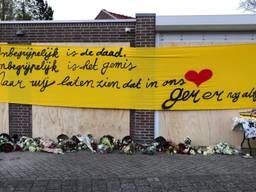 nbegrijpelijk is de daad.
nbegrijpelijk is het gemis
aar wij laten zien dat in ons
ger er nog